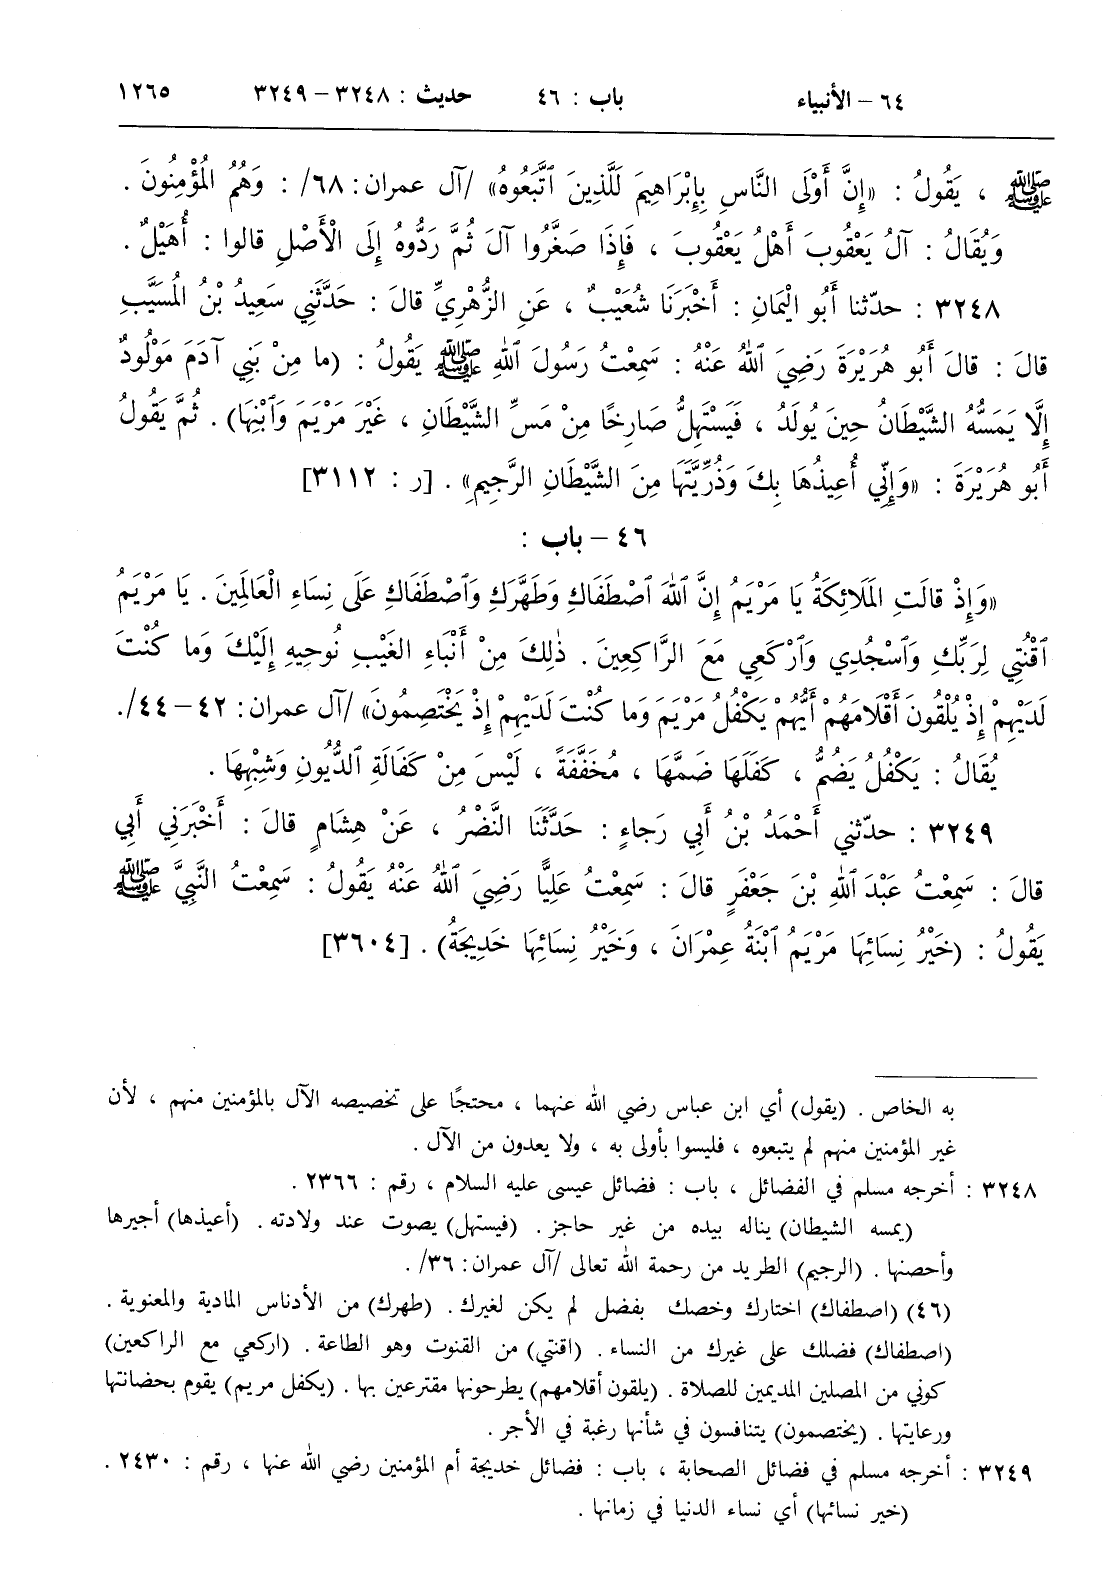 ٦٤ – الأنبياء باب : ٤٦ حديث : ٣٢٤٨ – ٣٢٤٩ ١٢٦٥
ﷺ ، يَقُولُ : «إِنَّ أَوْلَى النَّاسِ بِإِبْرَاهِيمَ لَلَّذِينَ ٱتَّبَعُوهُ» /آل عمران: ٦٨/ : وَهُمُ الْمُؤْمِنُونَ .
وَيُقَالُ : آلُ يَعْقُوبَ أَهْلُ يَعْقُوبَ ، فَإِذَا صَغَّرُوا آلَ ثُمَّ رَدُّوهُ إِلَى الْأَصْلِ قالوا : أُهَيْلٌ .
٣٢٤٨ : حدّثنا أَبُو الْيَمَانِ : أَخْبَرَنَا شُعَيْبٌ ، عَنِ الزُّهْرِيِّ قالَ : حَدَّثَنِي سَعِيدُ بْنُ الْمُسَيَّبِ
قالَ : قالَ أَبُو هُرَيْرَةَ رَضِيَ ٱللهُ عَنْهُ : سَمِعْتُ رَسُولَ ٱللهِ ﷺ يَقُولُ : (ما مِنْ بَنِي آدَمَ مَوْلُودٌ
إِلَّا يَمَسُّهُ الشَّيْطَانُ حِينَ يُولَدُ ، فَيَسْتَهِلُّ صَارِخًا مِنْ مَسِّ الشَّيْطَانِ ، غَيْرَ مَرْيَمَ وَٱبْنِهَا) . ثُمَّ يَقُولُ
أَبُو هُرَيْرَةَ : «وَإِنِّي أُعِيذُهَا بِكَ وَذُرِّيَّتَهَا مِنَ الشَّيْطَانِ الرَّجِيمِ» . [ر : ٣١١٢]
٤٦ – باب :
«وَإِذْ قالَتِ الْمَلَائِكَةُ يَا مَرْيَمُ إِنَّ ٱللهَ ٱصْطَفَاكِ وَطَهَّرَكِ وَٱصْطَفَاكِ عَلَى نِسَاءِ الْعَالَمِينَ . يَا مَرْيَمُ
ٱقْنُتِي لِرَبِّكِ وَٱسْجُدِي وَٱرْكَعِي مَعَ الرَّاكِعِينَ . ذٰلِكَ مِنْ أَنْبَاءِ الْغَيْبِ نُوحِيهِ إِلَيْكَ وَما كُنْتَ
لَدَيْهِمْ إِذْ يُلْقُونَ أَقْلَامَهُمْ أَيُّهُمْ يَكْفُلُ مَرْيَمَ وَما كُنْتَ لَدَيْهِمْ إِذْ يَخْتَصِمُونَ» /آل عمران: ٤٢ – ٤٤/.
يُقَالُ : يَكْفُلُ يَضُمُّ ، كَفَلَهَا ضَمَّهَا ، مُخَفَّفَةً ، لَيْسَ مِنْ كَفَالَةِ ٱلدُّيُونِ وَشِبْهِهَا .
٣٢٤٩ : حدّثني أَحْمَدُ بْنُ أَبِي رَجاءٍ : حَدَّثَنَا النَّضْرُ ، عَنْ هِشَامٍ قالَ : أَخْبَرَنِي أَبِي
قالَ : سَمِعْتُ عَبْدَ ٱللهِ بْنَ جَعْفَرٍ قالَ : سَمِعْتُ عَلِيًّا رَضِيَ ٱللهُ عَنْهُ يَقُولُ : سَمِعْتُ النَّبِيَّ ﷺ
يَقُولُ : (خَيْرُ نِسَائِهَا مَرْيَمُ ٱبْنَةُ عِمْرَانَ ، وَخَيْرُ نِسَائِهَا خَدِيجَةُ) . [٣٦٠٤]
به الخاص . (يقول) أي ابن عباس رضي الله عنهما ، محتجًا على تخصيصه الآل بالمؤمنين منهم ، لأن
غير المؤمنين منهم لم يتبعوه ، فليسوا بأولى به ، ولا يعدون من الآل .
٣٢٤٨ : أخرجه مسلم في الفضائل ، باب : فضائل عيسى عليه السلام ، رقم : ٢٣٦٦ .
(يمسه الشيطان) يناله بيده من غير حاجز . (فيستهل) يصوت عند ولادته . (أعيذها) أجيرها
وأحصنها . (الرجيم) الطريد من رحمة الله تعالى /آل عمران: ٣٦/ .
(٤٦) (اصطفاك) اختارك وخصك بفضل لم يكن لغيرك . (طهرك) من الأدناس المادية والمعنوية .
(اصطفاك) فضلك على غيرك من النساء . (اقنتي) من القنوت وهو الطاعة . (اركعي مع الراكعين)
كوني من المصلين المديمين للصلاة . (يلقون أقلامهم) يطرحونها مقترعين بها . (يكفل مريم) يقوم بحضانتها
ورعايتها . (يختصمون) يتنافسون في شأنها رغبة في الأجر .
٣٢٤٩ : أخرجه مسلم في فضائل الصحابة ، باب : فضائل خديجة أم المؤمنين رضي الله عنها ، رقم : ٢٤٣٠ .
(خير نسائها) أي نساء الدنيا في زمانها .